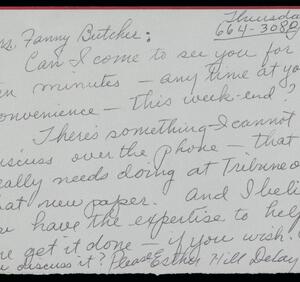 Thursday
664-3080
rs. Fanny Butcher:
Can I come to see you for
en minutes — any time at you
onvenience — this week-end?
There's something I cannot
iscuss over the phone — that
eally needs doing at Tribune o
hat new paper. And I belie
ou have the expertise to help
me get it done — if you wish.
u discuss it? Please Esther Hill Delay